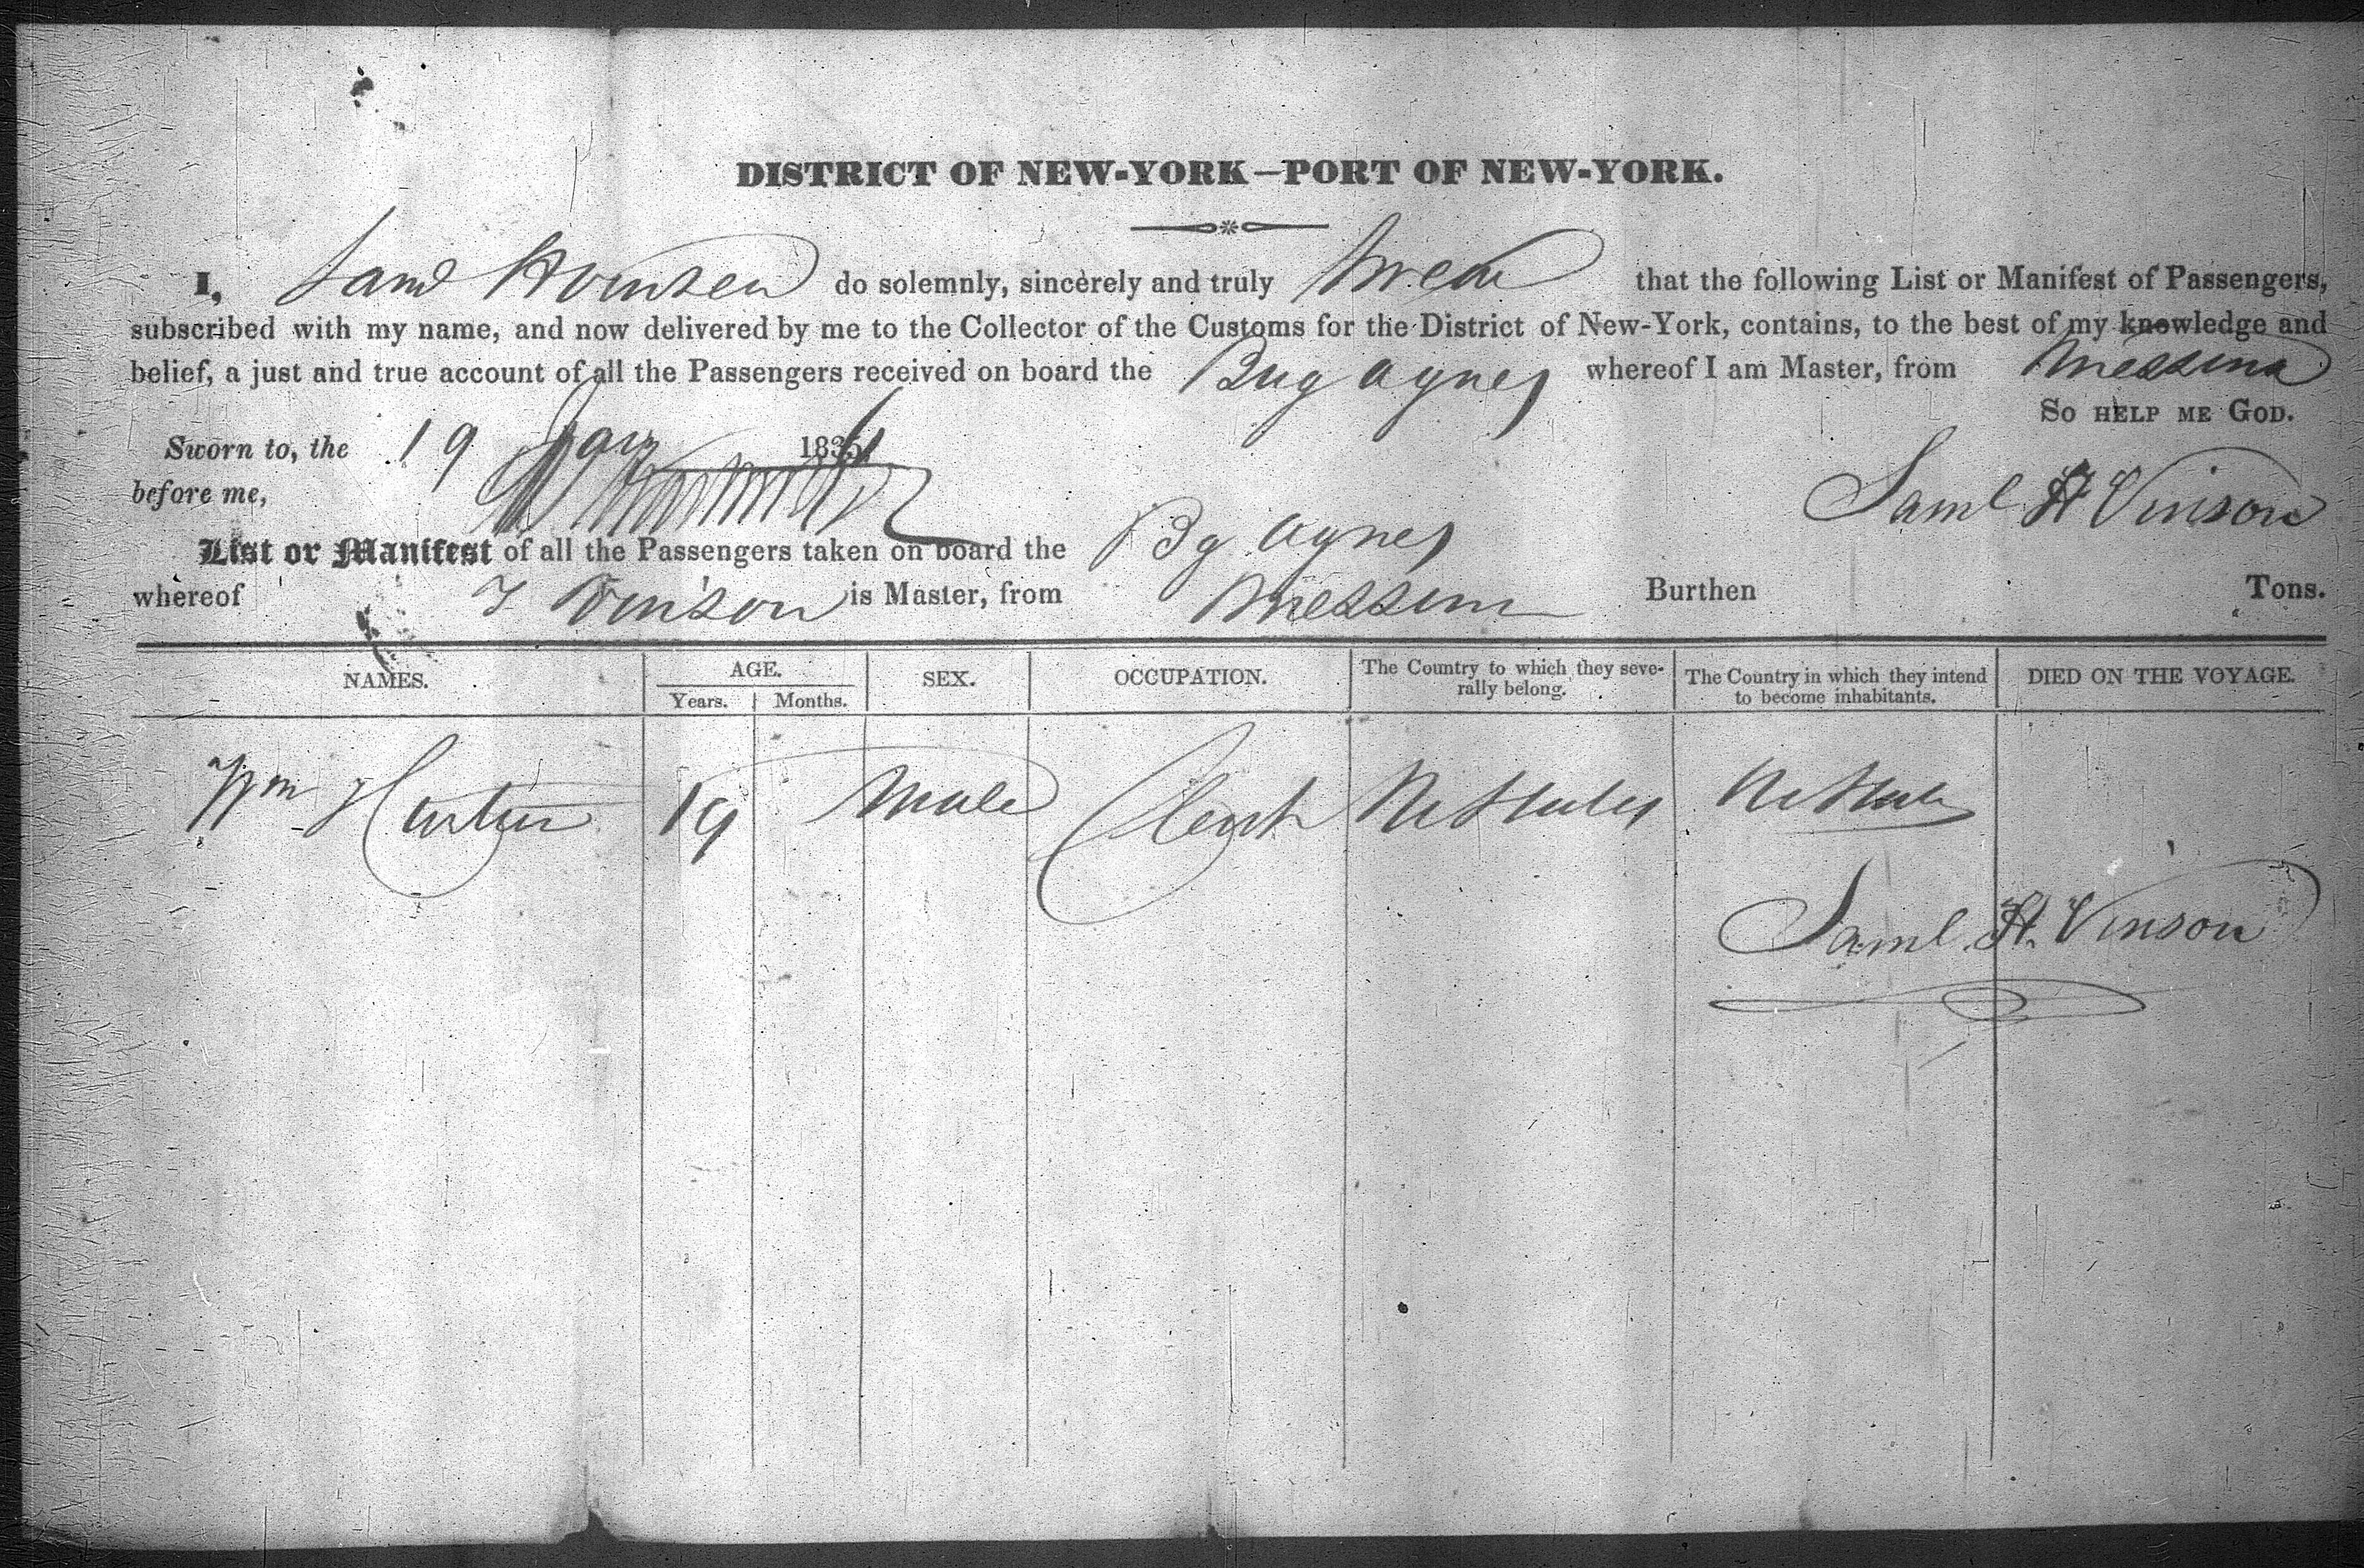 DISTRICT OF NEW-YORK—PORT OF NEW-YORK.
I, Saml H Vinson do solemnly, sincerely and truly Swear that the following List or Manifest of Passengers,
subscribed with my name, and now delivered by me to the Collector of the Customs for the District of New-York, contains, to the best of my knowledge and
belief, a just and true account of all the Passengers received on board the Brig Agnes whereof I am Master, from Messina
SO HELP ME GOD.
Sworn to, the 19 Jany 1836
before me,
Saml H Vinson
List or Manifest of all the Passengers taken on board the Bg Agnes
whereof Vinson is Master, from Messina Burthen Tons.
NAMES. AGE. SEX. OCCUPATION. The Country to which they seve-rally belong. The Country in which they intend to become inhabitants. DIED ON THE VOYAGE.
Years. Months.
Wm H Curtis 19 Male Clerk U States U States
Saml. H. Vinson